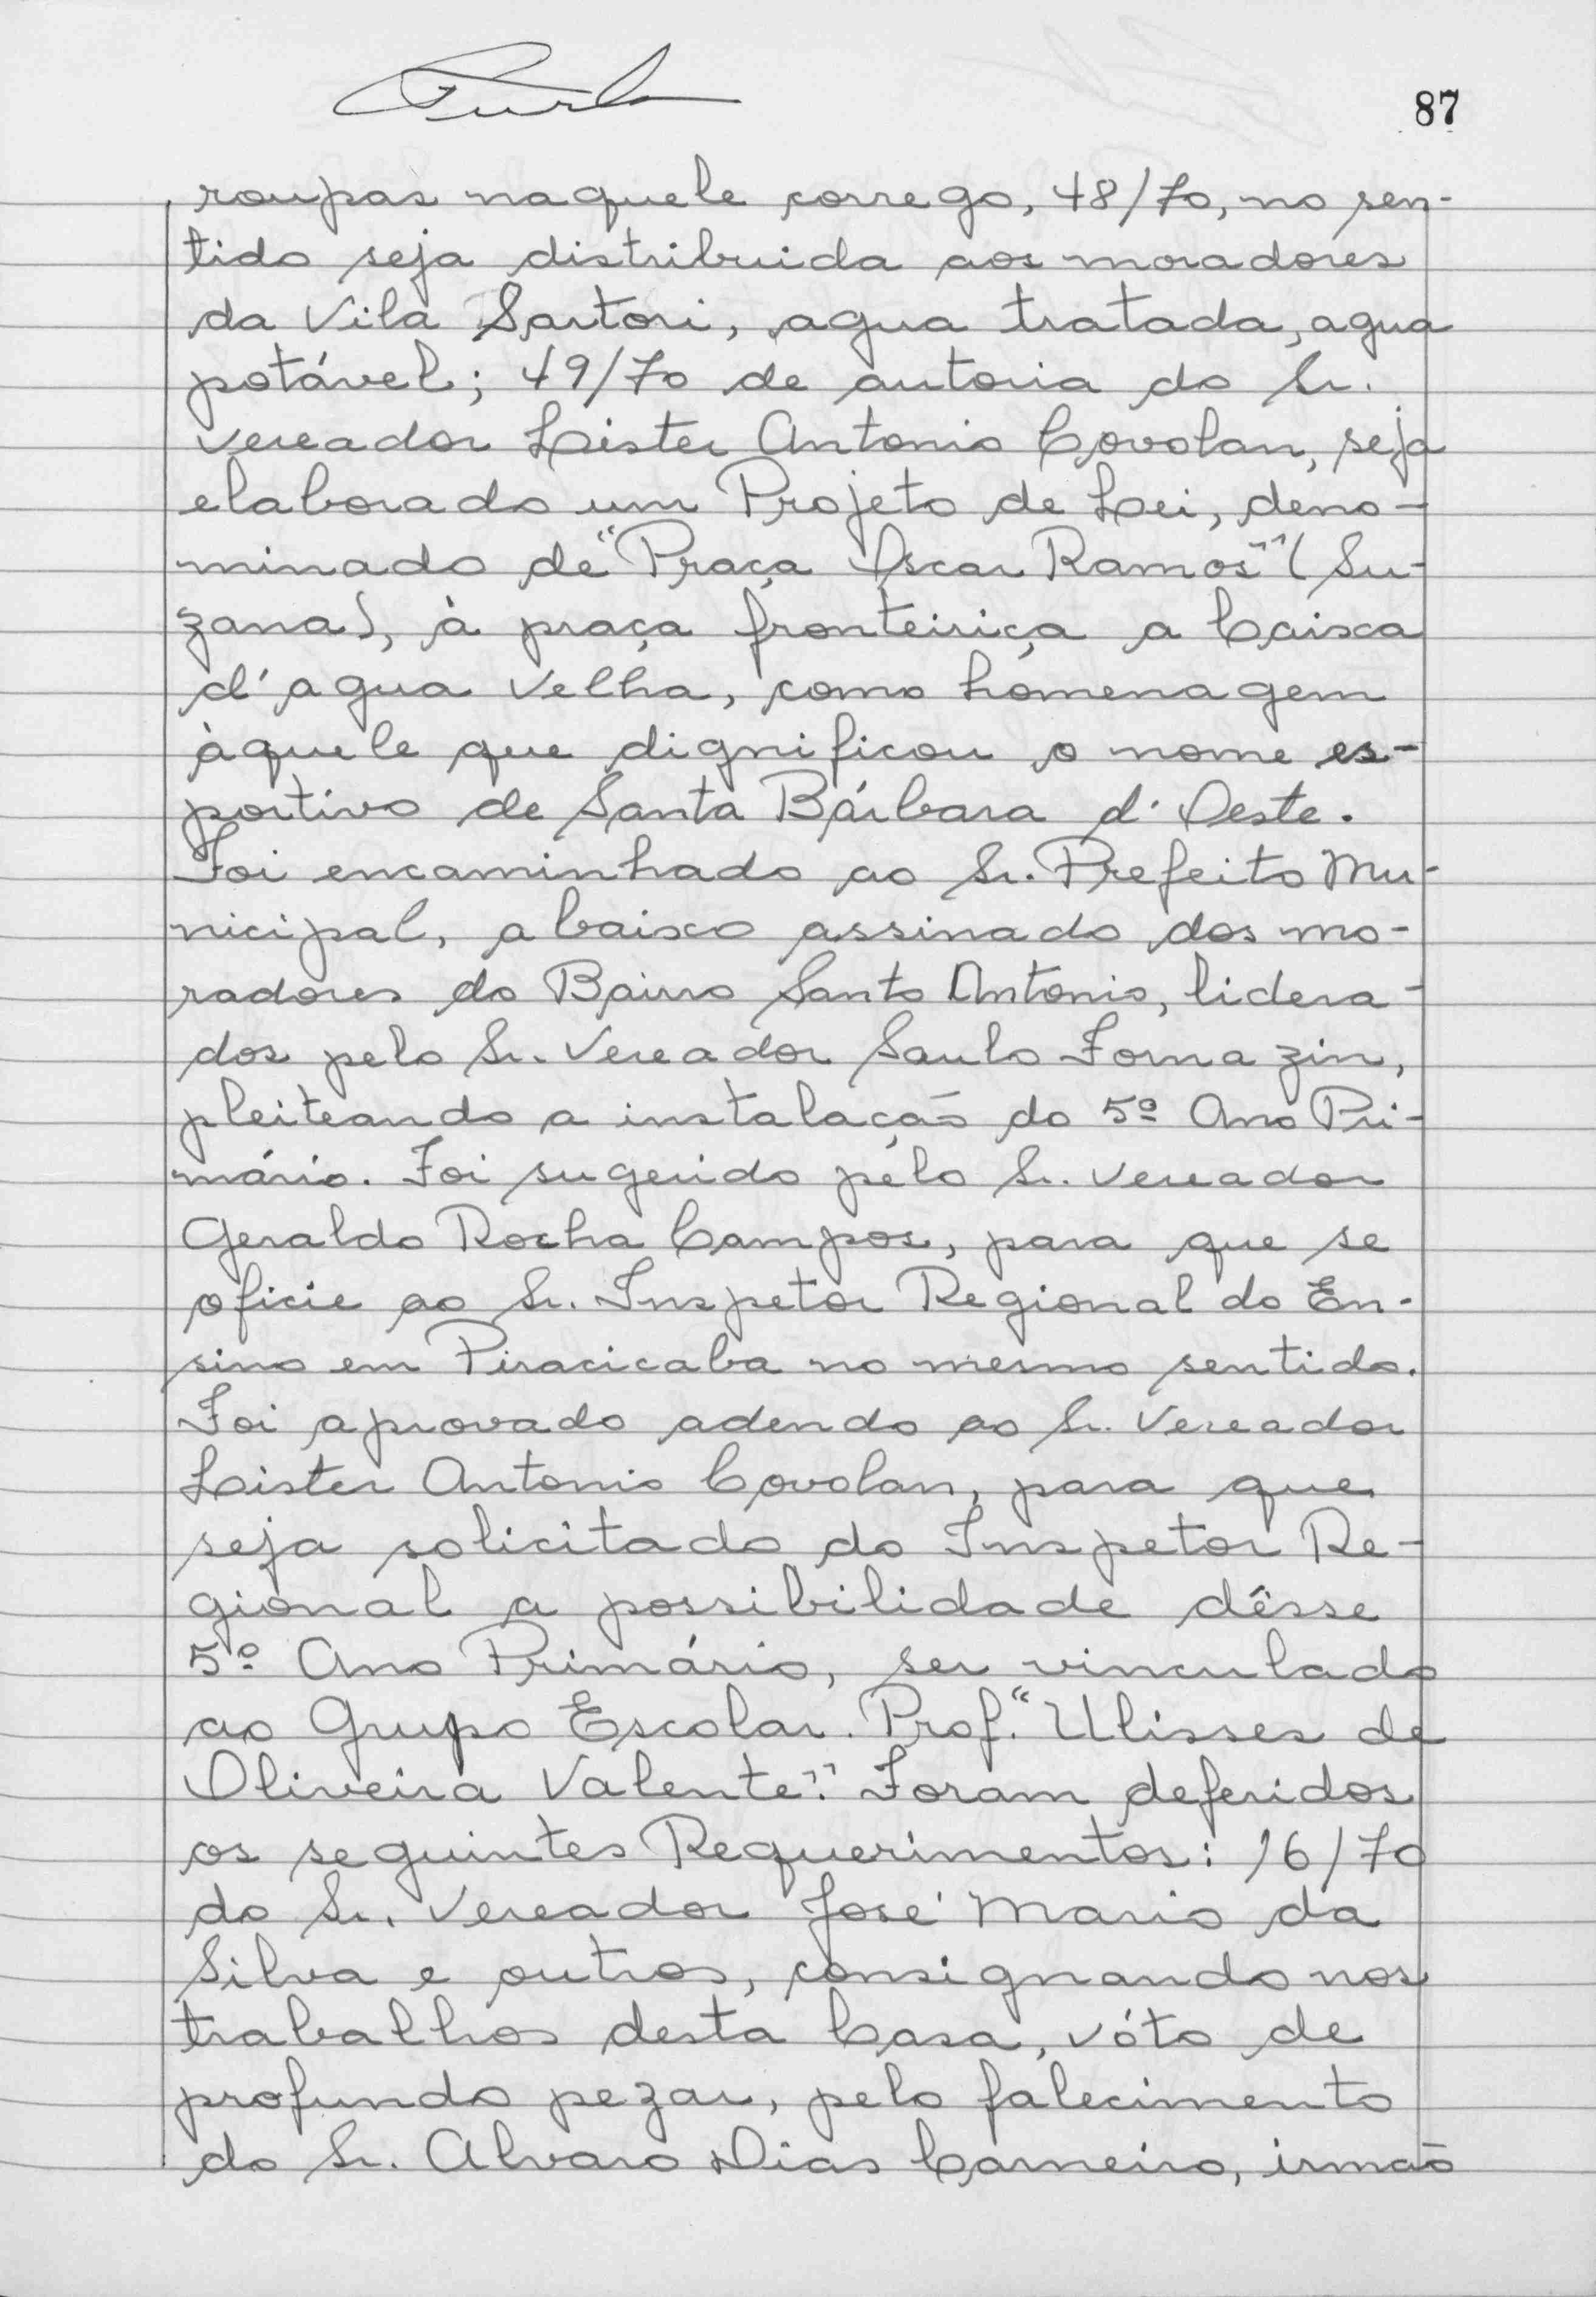 87
roupas naquele corrego, 48/70, no sen-
tido seja distribuida aos moradores
da Vila Sartori, agua tratada, agua
potável; 49/70 de autoria do Sr.
vereador Lister Antonio Covolan, seja
elaborado um Projeto de Lei, deno-
minado de "Praça Oscar Ramos" (Su-
zana), à praça fronteiriça a Caixa
d'agua Velha, como homenagem
àquele que dignificou o nome es-
portivo de Santa Bárbara d'Oeste.
Foi encaminhado ao Sr. Prefeito Mu-
nicipal, abaixo assinado dos mo-
radores do Bairro Santo Antonio, lidera-
dos pelo Sr. Vereador Saulo Fornazin,
pleiteando a instalação do 5º Ano Pri-
mário. Foi sugerido pelo Sr. vereador
Geraldo Rocha Campos, para que se
oficie ao Sr. Inspetor Regional do En-
sino em Piracicaba no mesmo sentido.
Foi aprovado adendo ao Sr. Vereador
Lister Antonio Covolan, para que
seja solicitado do Inspetor Re-
gional a possibilidade dêsse
5º Ano Primário, ser vinculado
ao Grupo Escolar. Prof. "Ulisses de
Oliveira Valente". Foram deferidos
os seguintes Requerimentos: 16/70
do Sr. Vereador José Mario da
Silva e outros, consignando nos
trabalhos desta Casa, vóto de
profundo pezar, pelo falecimento
do Sr. Alvaro Dias Carneiro, irmão